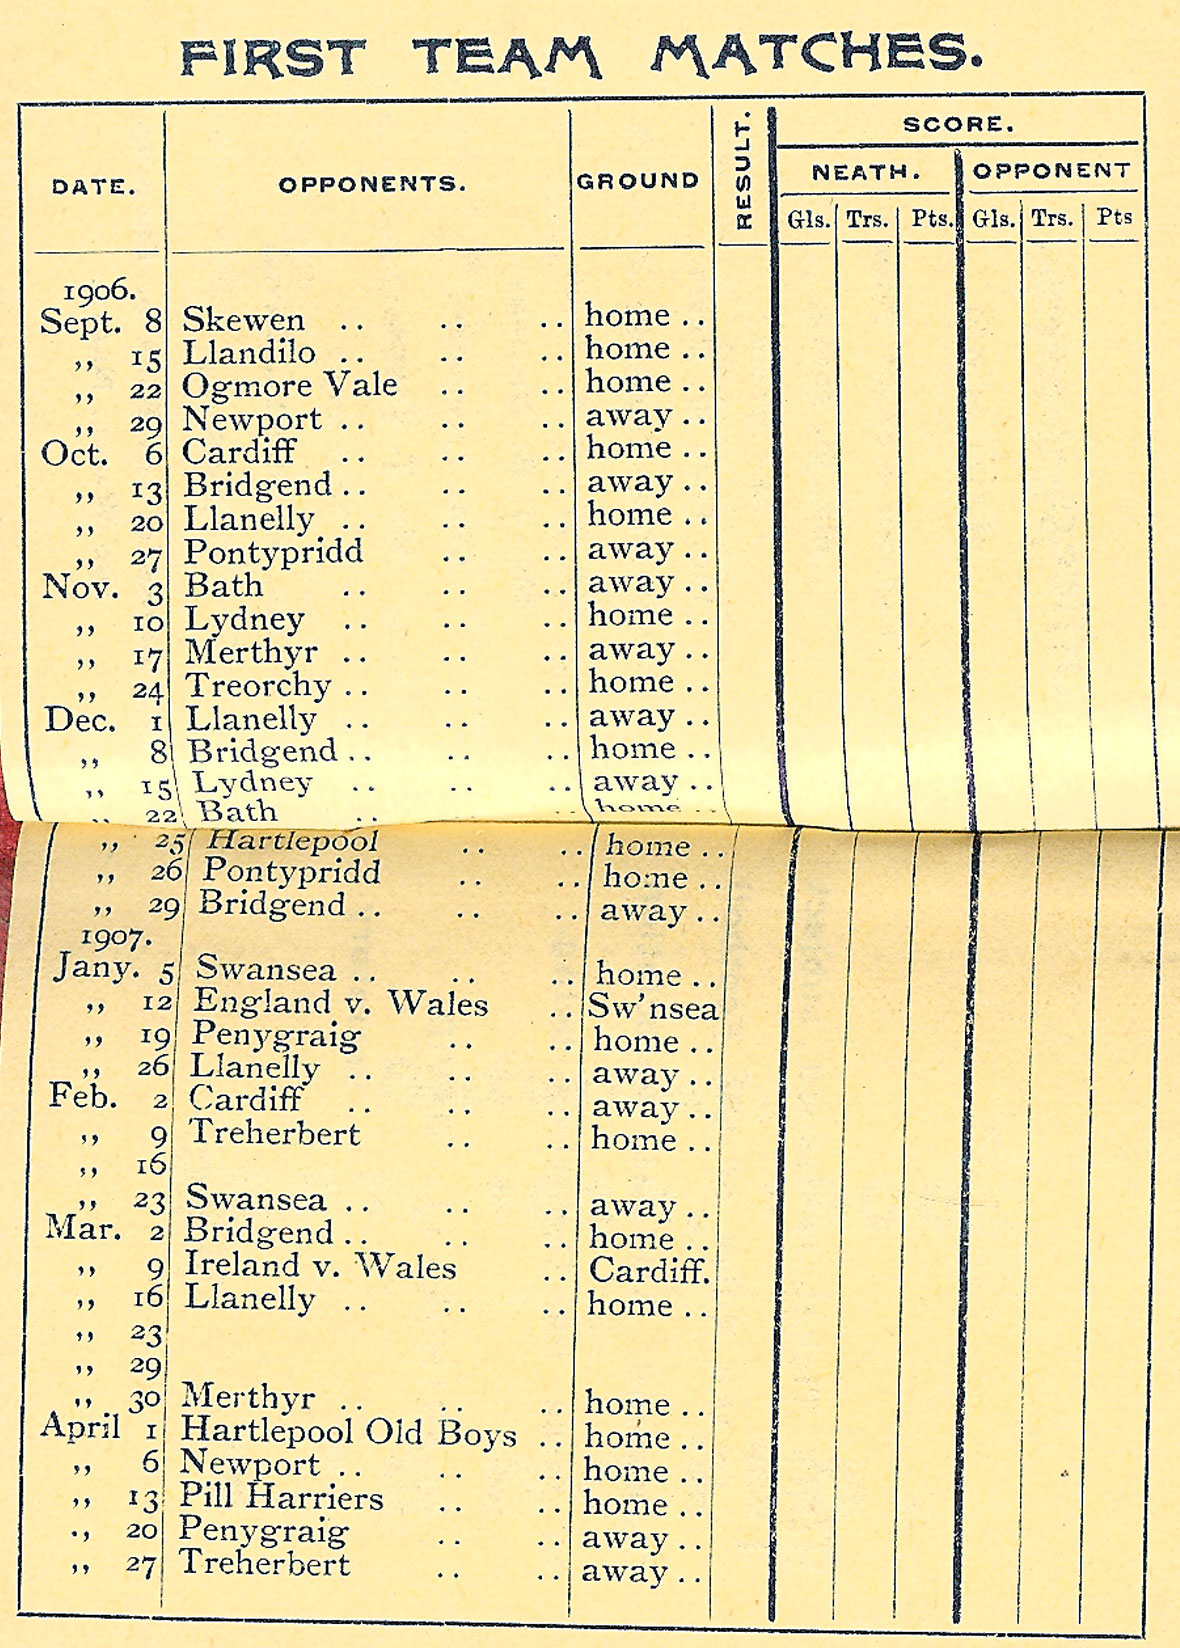 FIRST TEAM MATCHES.
DATE. OPPONENTS. GROUND RESULT. SCORE.
NEATH. OPPONENT
Gls. Trs. Pts. Gls. Trs. Pts
1906.
Sept. 8 Skewen .. .. .. home ..
,, 15 Llandilo .. .. .. home ..
,, 22 Ogmore Vale .. .. home ..
,, 29 Newport .. .. .. away ..
Oct. 6 Cardiff .. .. .. home ..
,, 13 Bridgend .. .. .. away ..
,, 20 Llanelly .. .. .. home ..
,, 27 Pontypridd .. .. away ..
Nov. 3 Bath .. .. .. away ..
,, 10 Lydney .. .. .. home ..
,, 17 Merthyr .. .. .. away ..
,, 24 Treorchy .. .. .. home ..
Dec. 1 Llanelly .. .. .. away ..
,, 8 Bridgend .. .. .. home ..
,, 15 Lydney .. .. .. away ..
,, 22 Bath .. .. home ..
,, 25 Hartlepool .. .. home ..
,, 26 Pontypridd .. .. home ..
,, 29 Bridgend .. .. .. away ..
1907.
Jany. 5 Swansea .. .. .. home ..
,, 12 England v. Wales .. Sw'nsea
,, 19 Penygraig .. .. home ..
,, 26 Llanelly .. .. .. away ..
Feb. 2 Cardiff .. .. .. away ..
,, 9 Treherbert .. .. home ..
,, 16
,, 23 Swansea .. .. .. away ..
Mar. 2 Bridgend .. .. .. home ..
,, 9 Ireland v. Wales .. Cardiff.
,, 16 Llanelly .. .. .. home ..
,, 23
,, 29
,, 30 Merthyr .. .. .. home ..
April 1 Hartlepool Old Boys .. home ..
,, 6 Newport .. .. .. home ..
,, 13 Pill Harriers .. .. home ..
., 20 Penygraig .. .. away ..
,, 27 Treherbert .. .. away ..